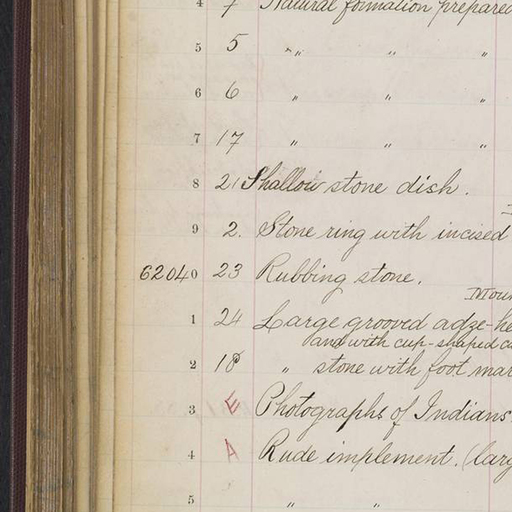 4 7 Natural formation prepared
5 5 " " "
6 6 " " "
7 17 " " "
8 21 Shallow stone dish.
9 2. Stone ring with incised
62040 23 Rubbing stone.
1 24 Large grooved adze-he
and with cup-shaped c
2 18 " stone with foot mar
3 E Photographs of Indians
4 A Rude implement. (larg
5 " "